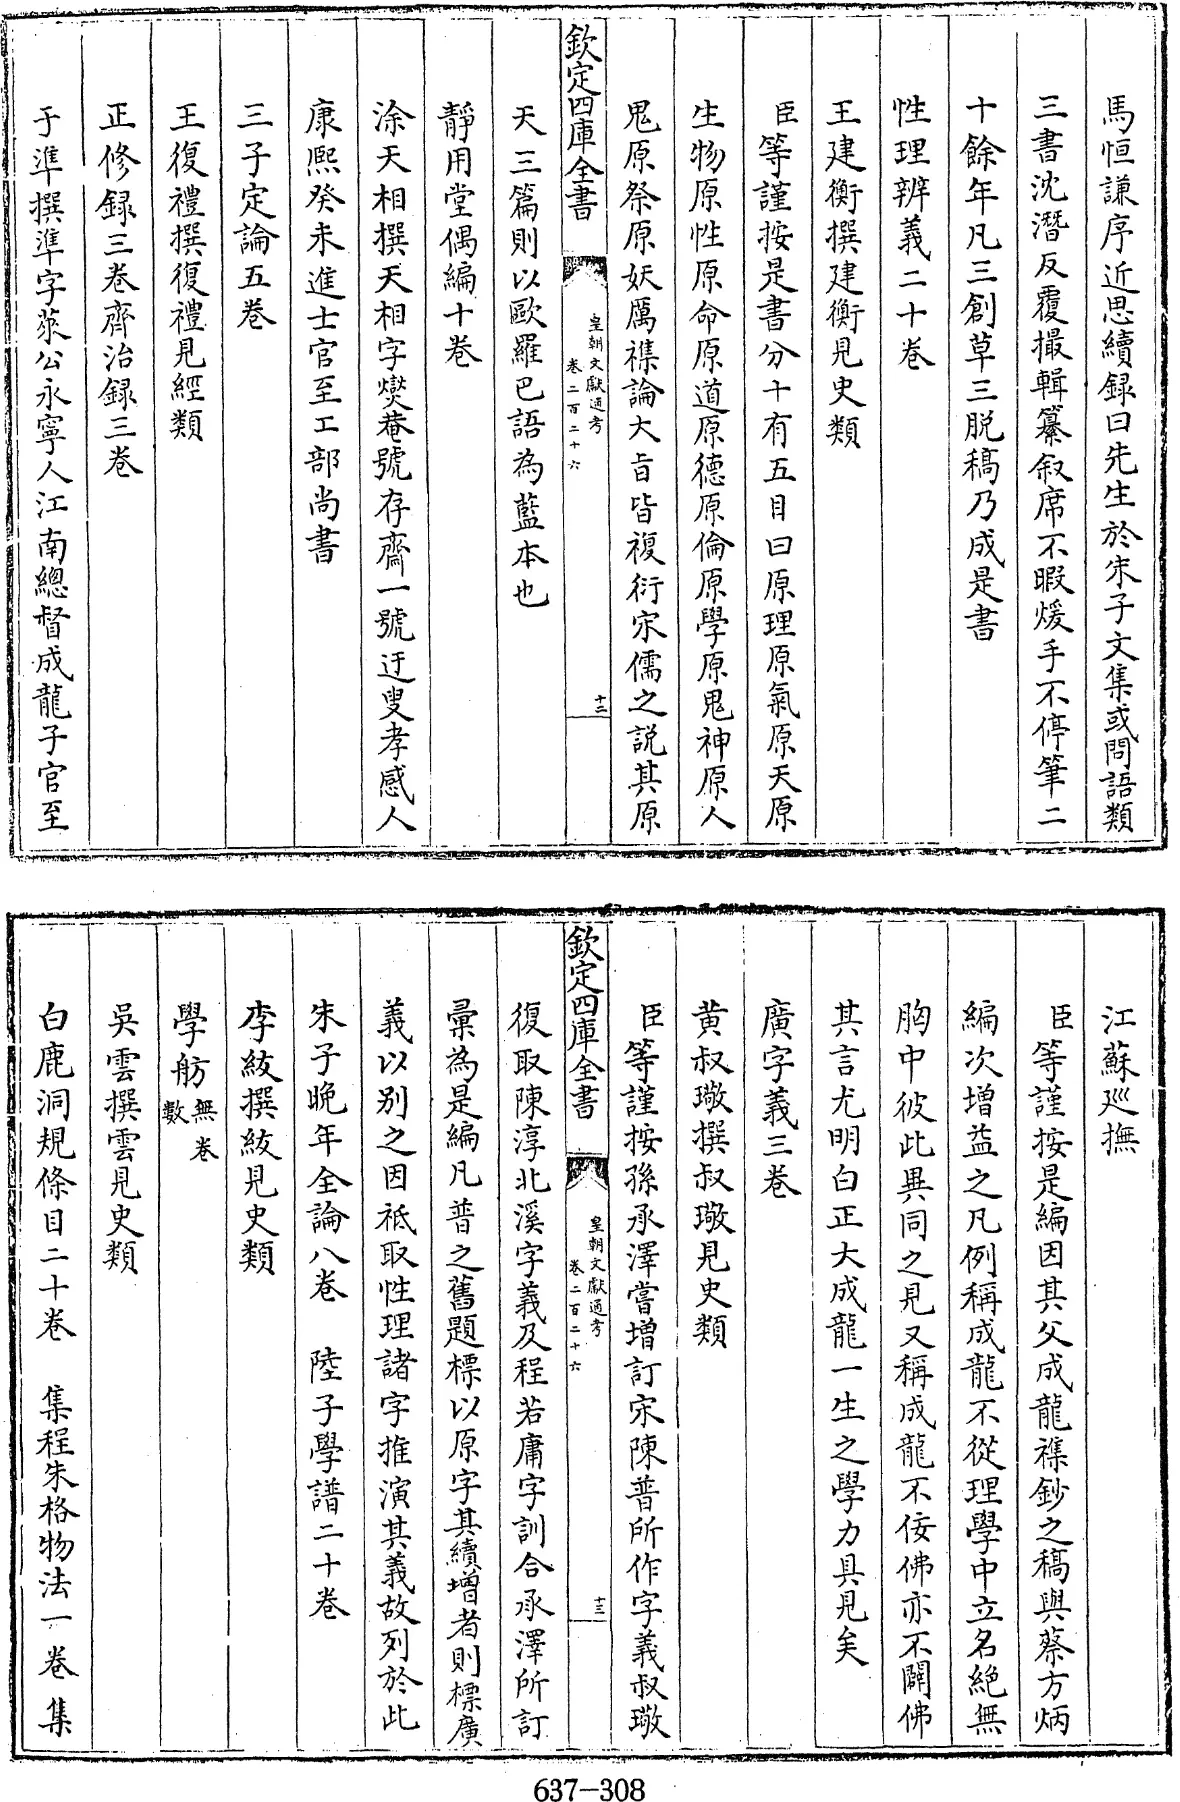 馬恒謙序近思續録曰先生於朱子文集或問語類
三書沈潛反覆撮輯纂叙席不暇煖手不停筆二
十餘年凡三創草三脱稿乃成是書
性理辨義二十卷
王建衡撰建衡見史類
臣等謹按是書分十有五目曰原理原氣原天原
生物原性原命原道原德原倫原學原鬼神原人
鬼原祭原妖厲襍論大旨皆複衍宋儒之説其原
欽定四庫全書
皇朝文獻通考
卷二百二十六
十二
天三篇則以歐羅巴語為藍本也
靜用堂偶編十卷
涂天相撰天相字爕菴號存齋一號迂叟孝感人
康熙癸未進士官至工部尚書
三子定論五卷
王復禮撰復禮見經類
正修録三卷齊治録三卷
于準撰準字萊公永寧人江南總督成龍子官至
江蘇廵撫
臣等謹按是編因其父成龍襍鈔之稿與蔡方炳
編次增益之凡例稱成龍不從理學中立名絶無
胸中彼此異同之見又稱成龍不佞佛亦不闢佛
其言尤明白正大成龍一生之學力具見矣
廣字義三卷
黄叔璥撰叔璥見史類
臣等謹按孫承澤嘗增訂宋陳普所作字義叔璥
欽定四庫全書
皇朝文獻通考
卷二百二十六
十三
復取陳淳北溪字義及程若庸字訓合承澤所訂
彚為是編凡普之舊題標以原字其續增者則標廣
義以别之因祗取性理諸字推演其義故列於此
朱子晚年全論八卷　陸子學譜二十卷
李紱撰紱見史類
學舫無卷數
吳雲撰雲見史類
白鹿洞規條目二十卷　集程朱格物法一卷 集
637-308